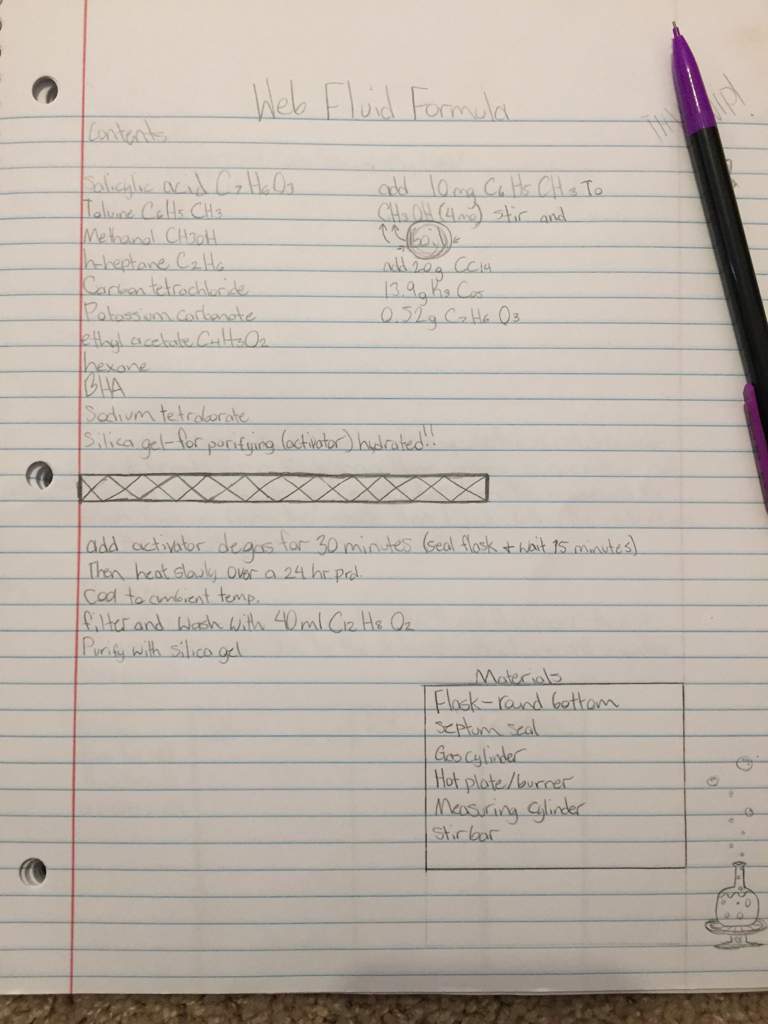 Web Fluid Formula
Contents
Salicylic acid C7H6O3
Toluine C6H5 CH3
Methanol CH3OH
n-heptane C2H6
Carbon tetrachloride
Potassium carbonate
ethyl acetate C4H3O2
hexane
BHA
Sodium tetraborate
Silica gel-for purifying (activator) hydrated!!
add 10mg C6 H5 CH3 To
CH3OH (4mg) stir and
boil
add 20g CCl4
13.9g K2 Co3
0.52g C7H6 O3
add activator degas for 30 minutes (seal flask + wait 15 minutes)
Then heat slowly over a 24 hr prd.
Cool to ambient temp.
filter and Wash with 40ml C12 H8 O2
Purify with silica gel
Materials
Flask-round bottom
septum seal
Gas cylinder
Hot plate/burner
Measuring cylinder
stir bar